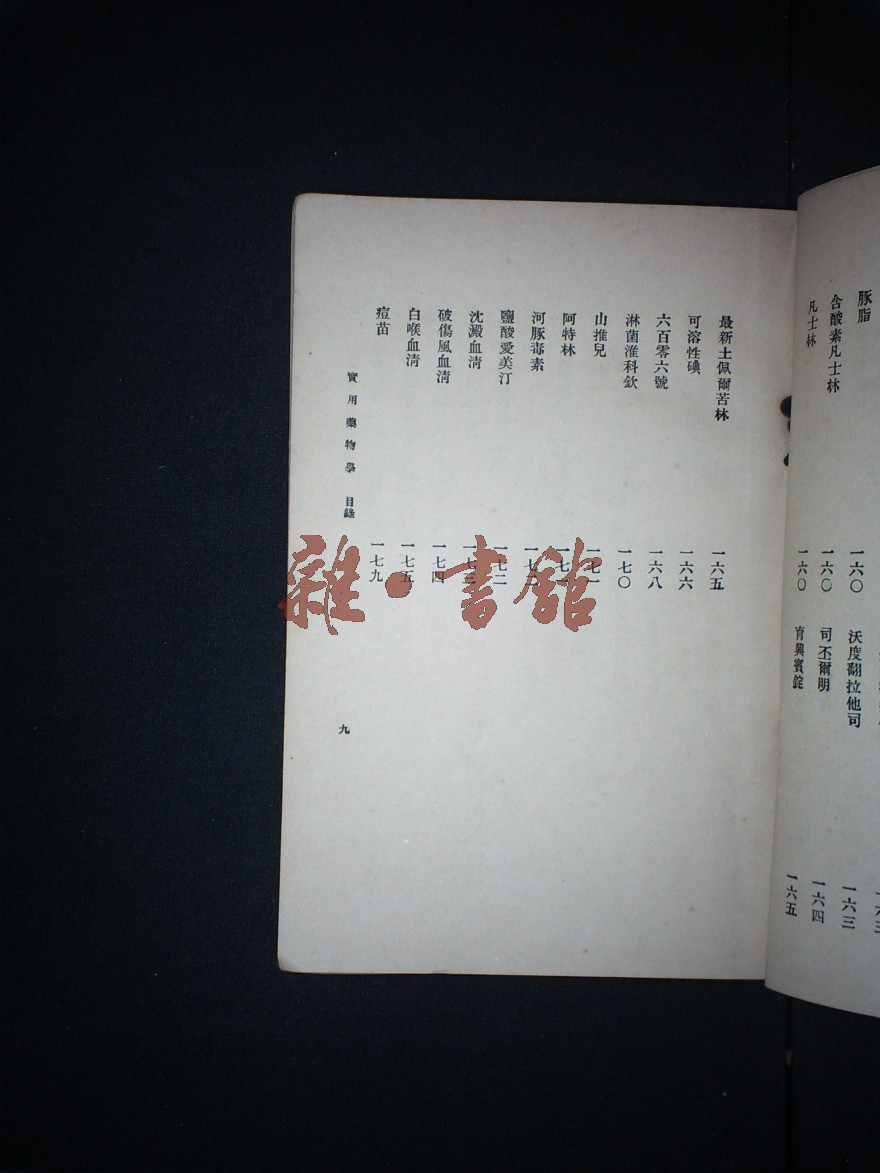 豚脂 一六〇
含酸素凡士林 一六〇
凡士林 一六〇
沃度翻拉他司 一六三
司丕爾明 一六四
育奧賓錠 一六五
最新土佩爾苦林 一六五
可溶性碘 一六六
六百零六號 一六八
淋菌淮科欽 一七〇
山推兒 一七一
阿特林
河豚毒素
鹽酸愛美汀 一七二
沈澱血淸 一七三
破傷風血淸 一七四
白喉血淸 一七五
痘苗 一七九
實用藥物學 目錄
九
雜·書館